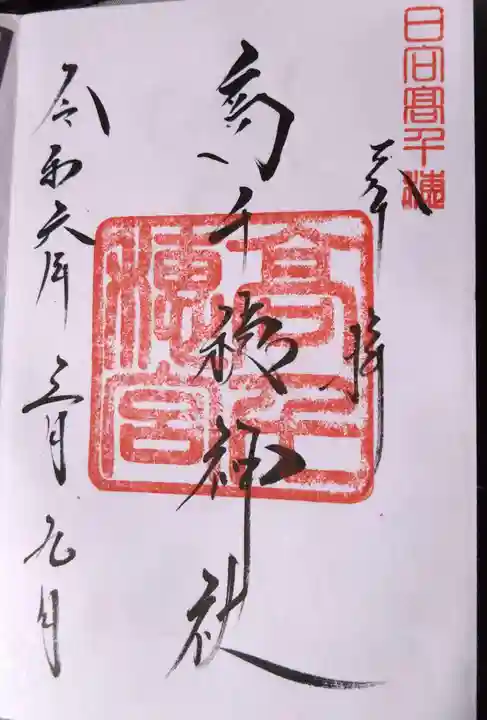 日向髙千穂
奉拝
高千穂神社
高千穂宮
令和六年三月九日